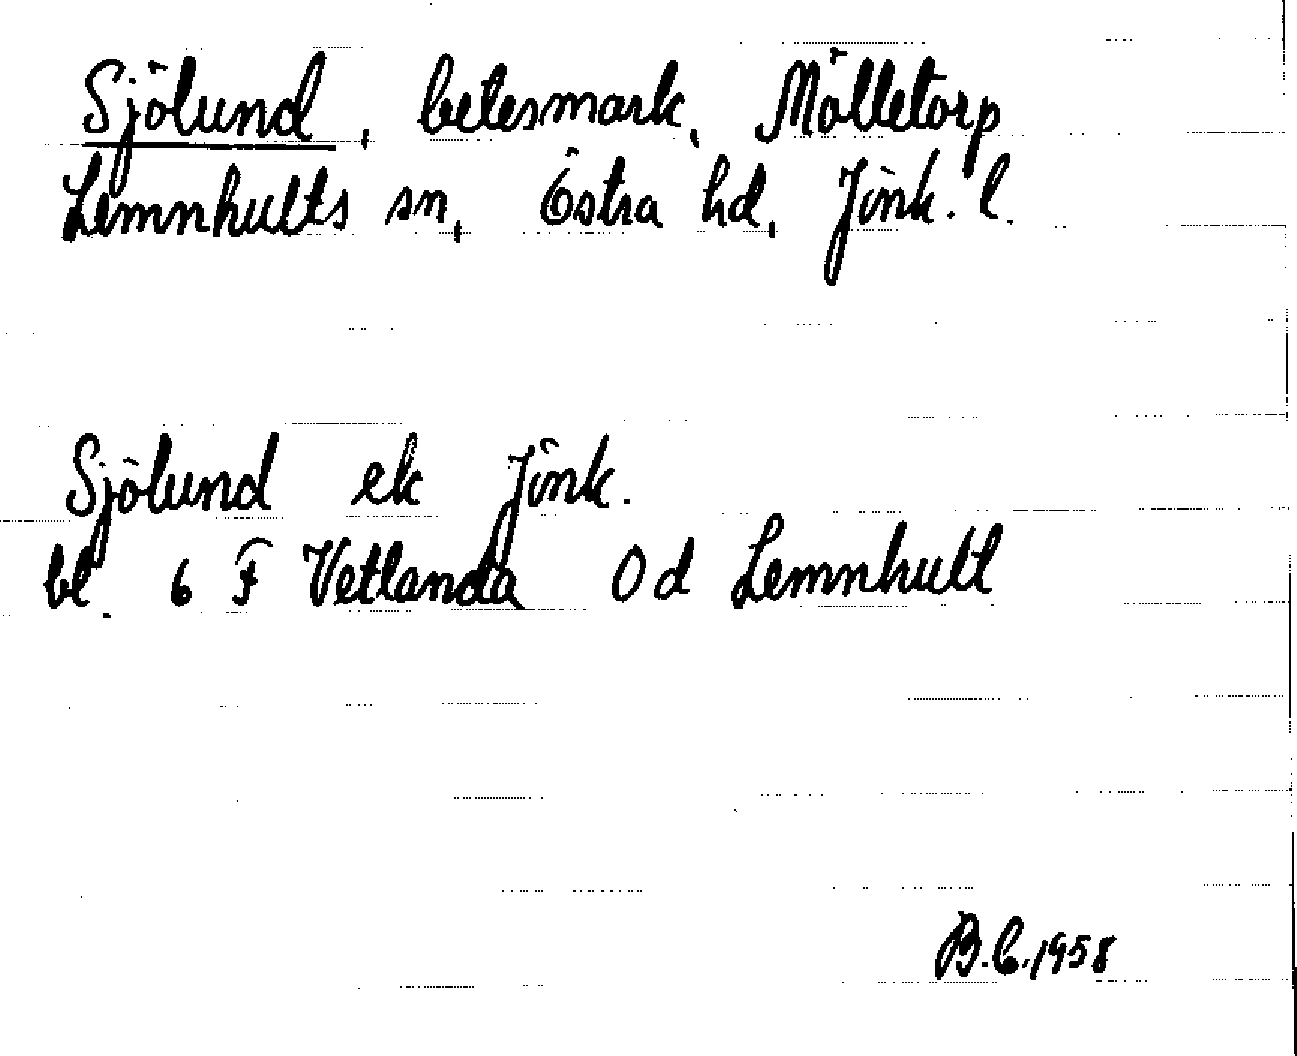 Sjölund, betesmark, Mölletorp
Lemnhults sn, Östra hd, Jönk. l.
Sjölund ek Jönk.
bl. 6 F Vetlanda 0 d Lemnhult
B.C. 1958